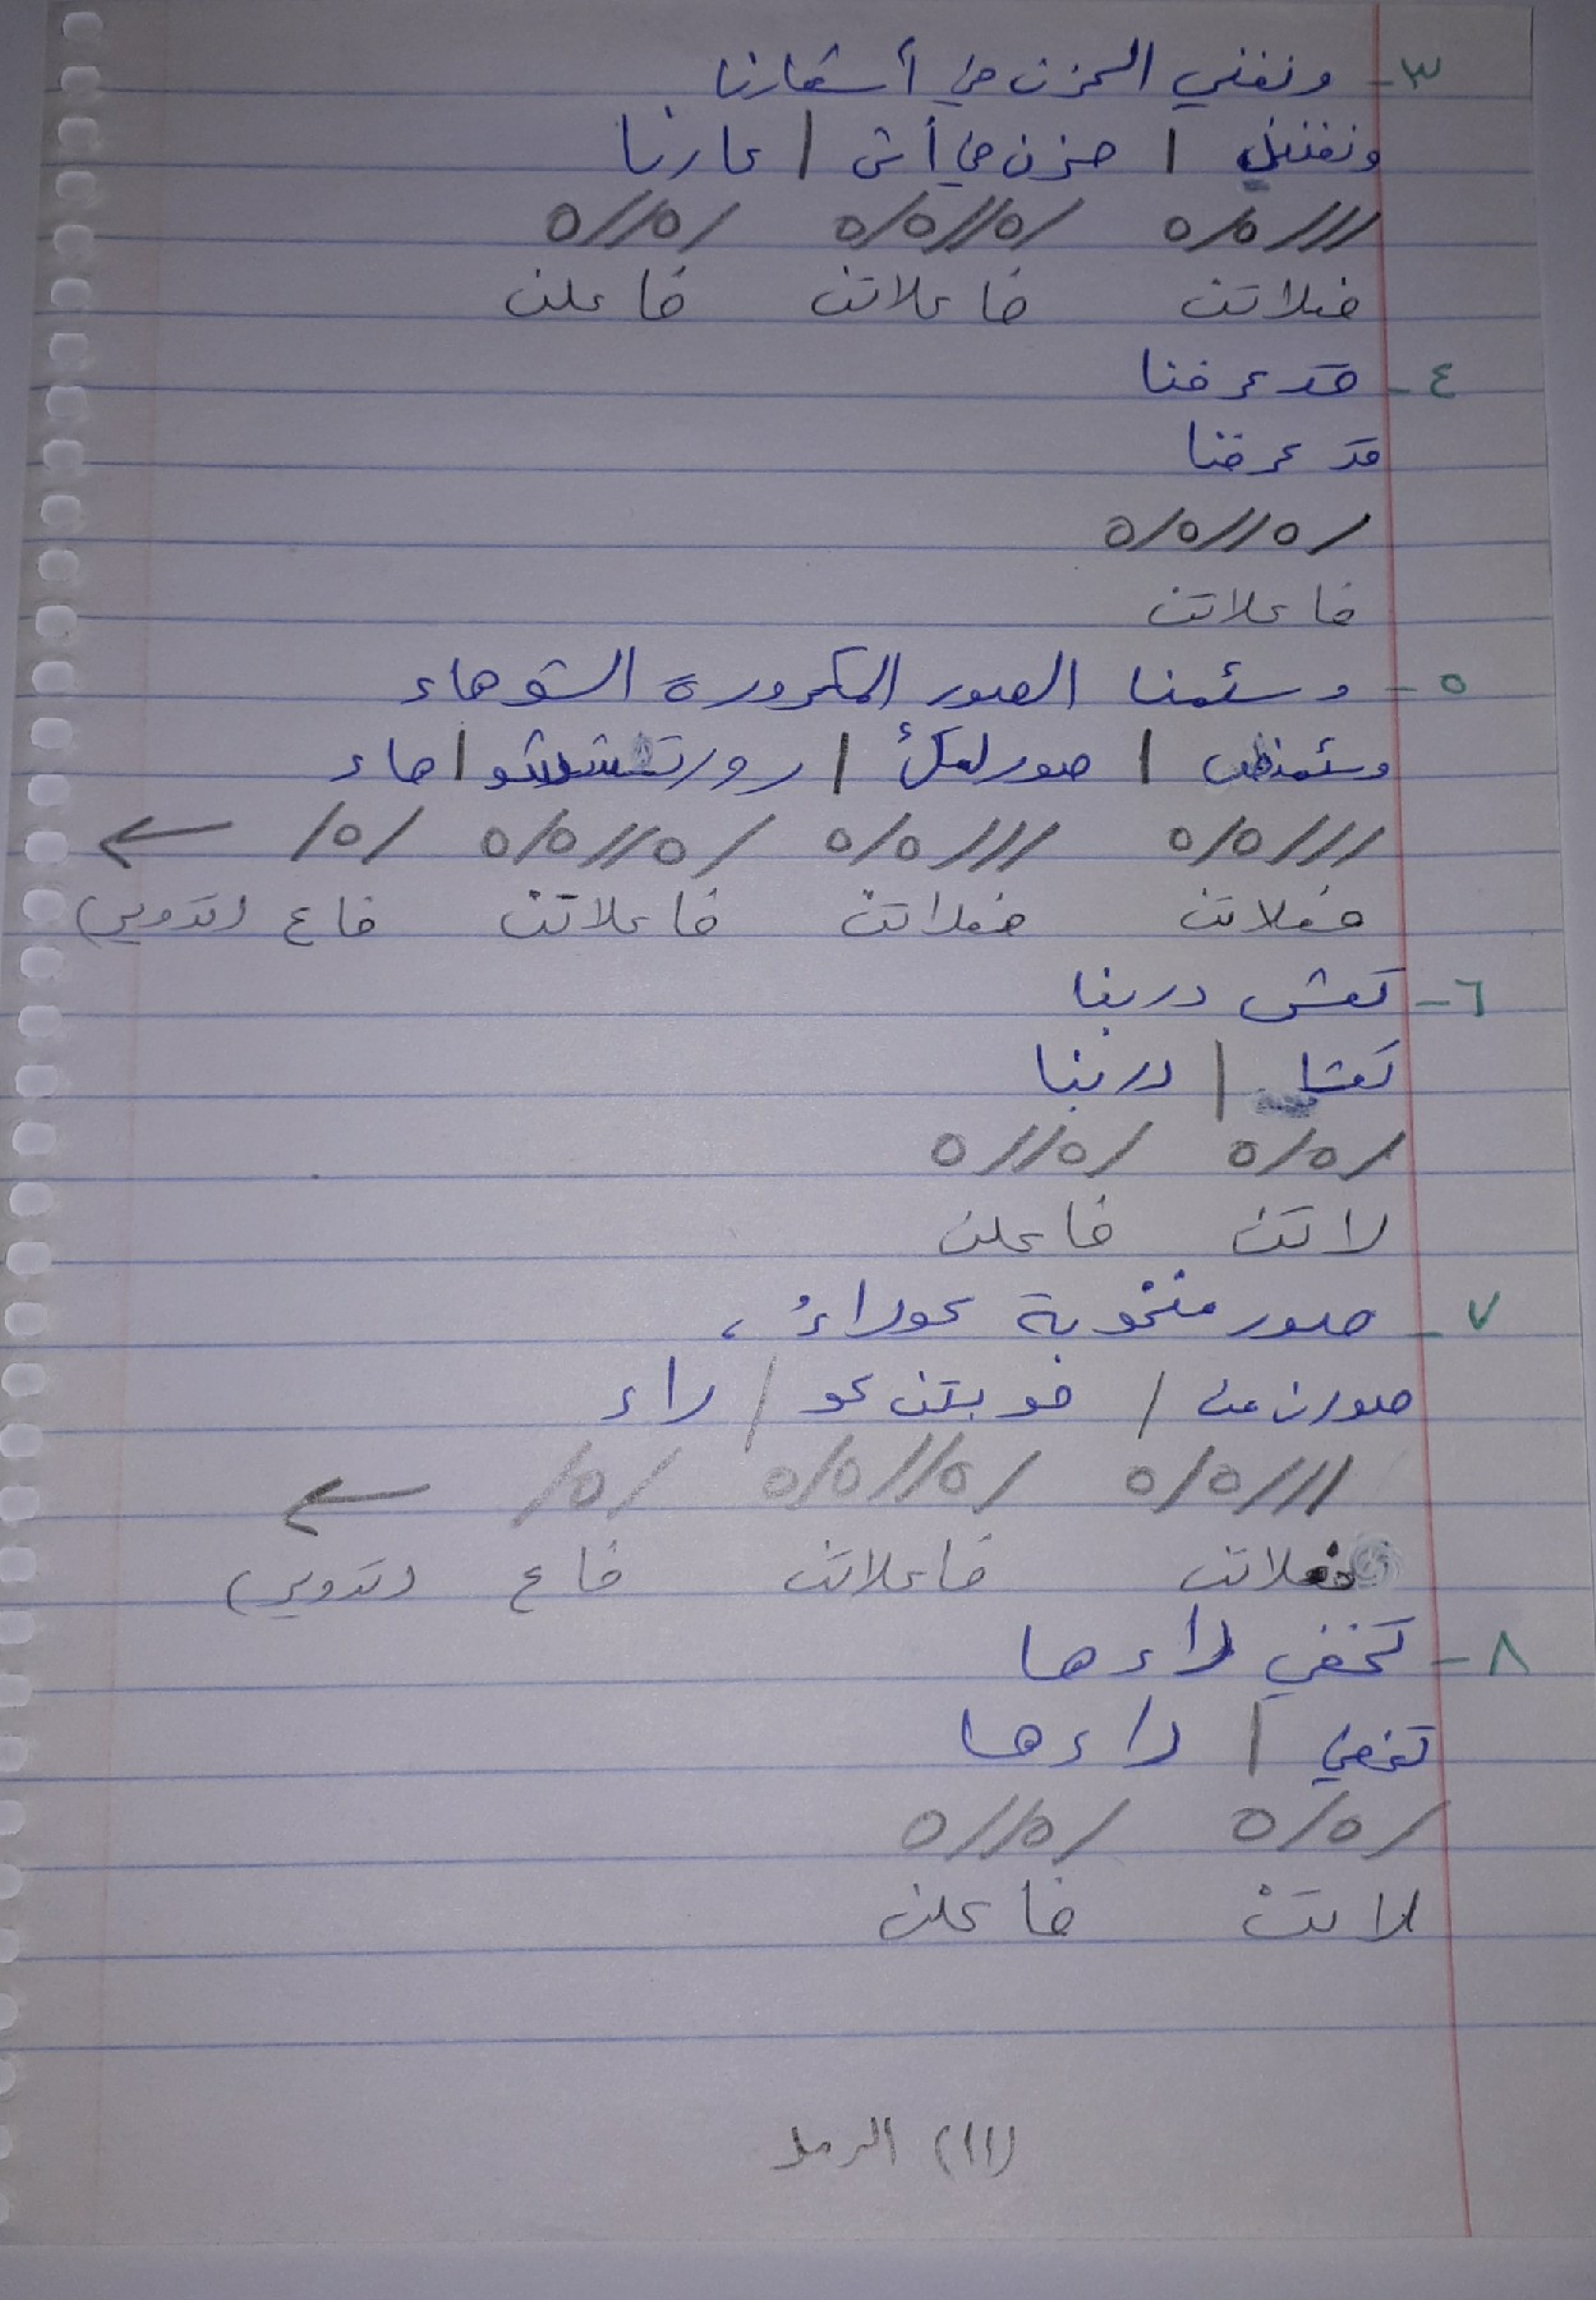 ٣- ونغني الحزن في أشعارنا
ونغننل | حزن في أش | عارنا
///ه/ه /ه//ه/ه /ه//ه
فعلاتن فاعلاتن فاعلن
٤- قد عرفنا
قد عرفنا
/ه//ه/ه
فاعلاتن
٥- وسئمنا الصور المكرورة الشوهاء
وسئمنصـ | صور لمكـ | رورتششو | هاء
///ه/ه ///ه/ه /ه//ه/ه /ه/ ←
فعلاتن فعلاتن فاعلاتن فاع (تدوير)
٦- تعشى دربنا
تعشا | دربنا
/ه/ه /ه//ه
لاتن فاعلن
٧- صور منخوبة عوراءُ ،
صورن من / خوبتن عو / راء
///ه/ه /ه//ه/ه /ه/ ←
فعلاتن فاعلاتن فاع (تدوير)
٨- تخفي داءها
تخفي | داءها
/ه/ه /ه//ه
لاتن فاعلن
(١١) الرمل